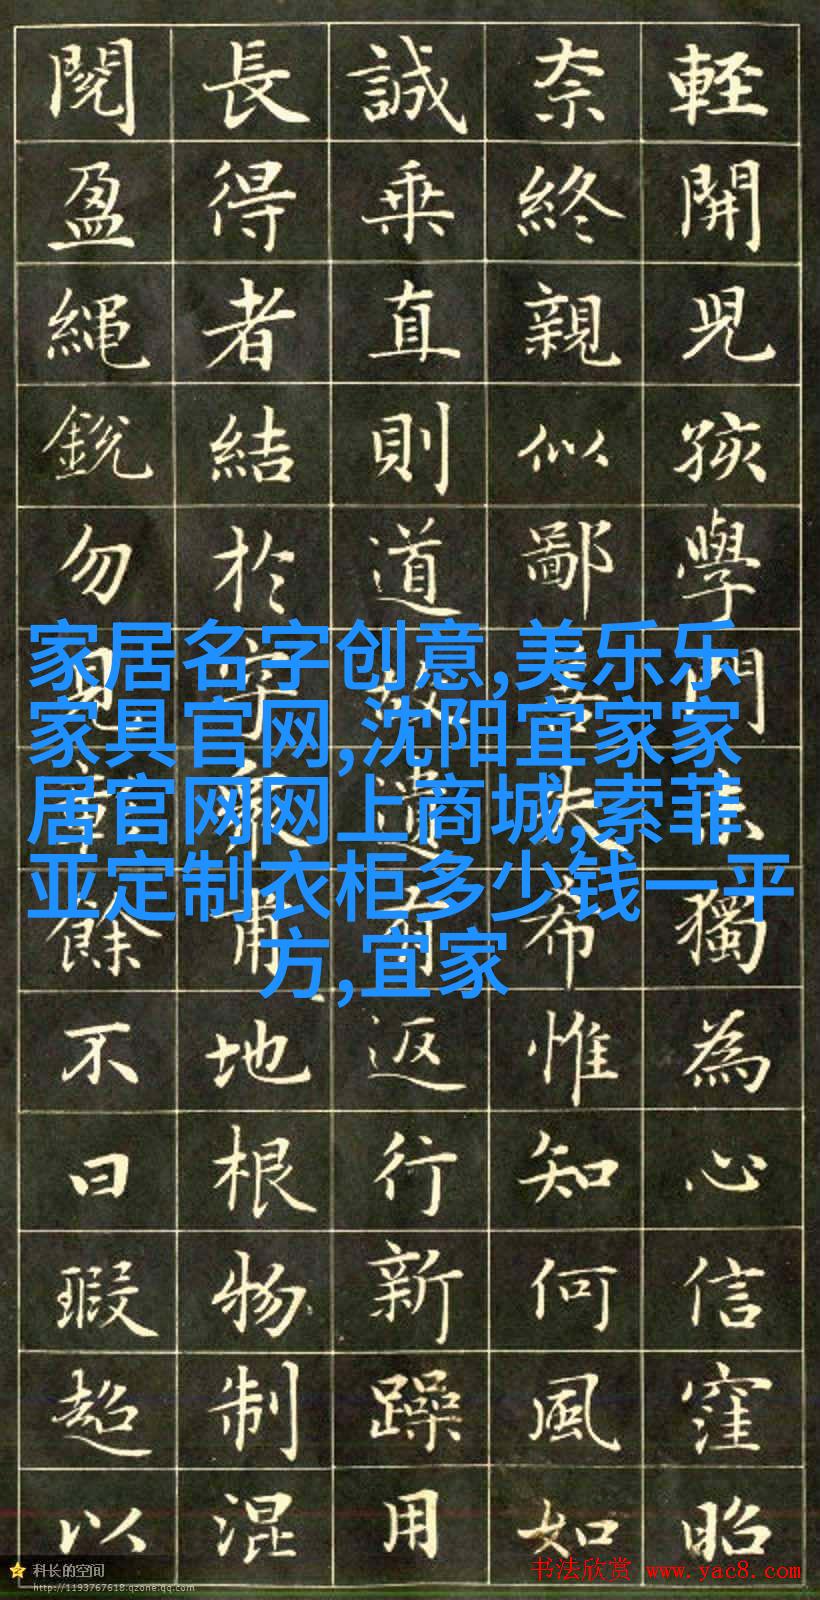 輊開兒孩學門獨為心信窪昭
奈終親似鄙善希惟知何風如
誠乘直則道有返行新躁用
長得者結於甫地根物制混
閱盈繩銳勿見餘不曰瑕超以
家居名字创意,美乐乐
家具官网,沈阳宜家家
居官网网上商城,索菲
亚定制衣柜多少钱一平
方,宜家
科长的空间
http://1193767618.qzone.qq.com
书法欣赏 www.yac8.com